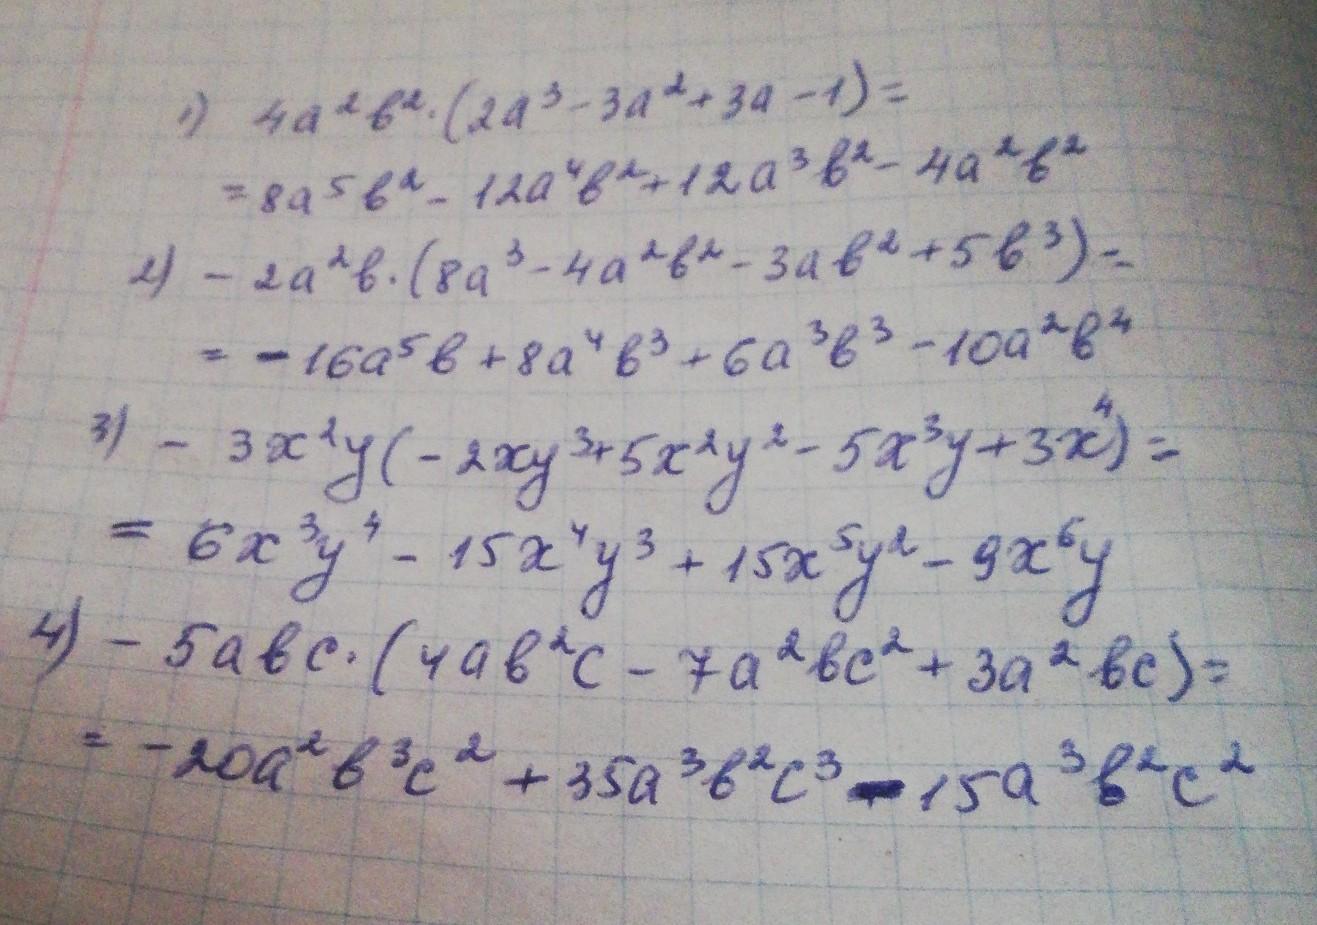 1) 4a²b²·(2a³-3a²+3a-1)=
=8a⁵b²-12a⁴b²+12a³b²-4a²b²
2) -2a²b·(8a³-4a²b²-3ab²+5b³)=
= -16a⁵b+8a⁴b³+6a³b³-10a²b⁴
3) -3x²y(-2xy³+5x²y²-5x³y+3x⁴)=
= 6x³y⁴-15x⁴y³+15x⁵y²-9x⁶y
4) -5abc·(4ab²c-7a²bc²+3a²bc)=
= -20a²b³c²+35a³b²c³-15a³b²c²